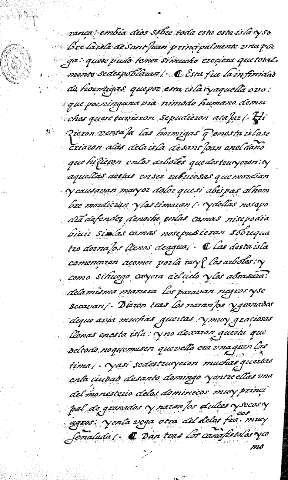 rança: embia dios sobre toda esta isla y so
bre la isla de sant Juan principalmente una pla
ga: que se pudo temer si mucho creciera que total
mente se despoblaran / . Esta fue la infinidad
de hormigas que por esta isla y aquella ovo:
que por ninguna via ni modo humano de mu
chas que se tuvieron se pudieron atajar / . Hi
zieron ventaja las hormigas que en esta isla se
criaron a las de la isla de sant Juan en el daño
que hizieron en los arboles que destruyeron: y
aquellas a estas en ser rabiosas que mordian
y causavan mayor dolor que si abispas al hom
bre mordieran y lastimaran / . y dellas no se po
dian defender de noche en las camas ni se podia
bivir si las camas no se pusieran sobre qua
tro dornajos llenos de agua / . Las desta isla
començaron a comer por la rayz los arboles: y
como si fuego cayera del cielo y los abrasara
de la misma manera los paravan negros y se
secavan / . Dieron tras los naranjos y granados
de que avia muchas guertas y muy graciosas
llenas en esta isla: y no dexaron guerta que
del todo no quemasen que vella era una gran las
tima / . y assi se destruyeron muchas guertas
en la ciudad de santo domingo y entre ellas una
del monesterio de los dominicos muy princi
pal de granados y naranjos dulces y secos y
agros: y en la vega otra del de los fran.cos muy
señalada / . Dan tras los cañafistolos y co
mo